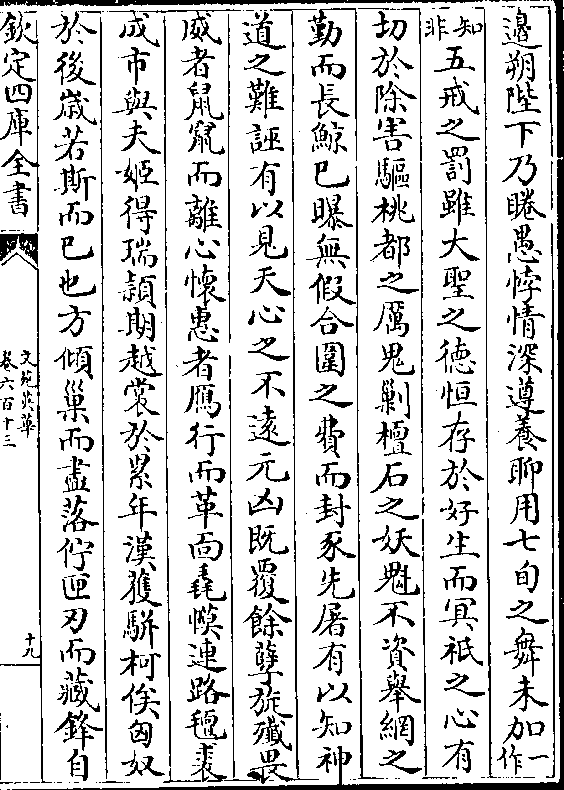 邉朔陛下乃睠愚悖情深遵養聊用七旬之舞未加一作
知非五戒之罰雖大聖之德恒存於好生而冥祇之心有
切於除害驅桃都之厲鬼剿檀石之妖魁不資舉網之
勤而長鯨已曝無假合圍之費而封豕先屠有以知神
道之難誣有以見天心之不逺元凶既覆餘孽旋殲畏
威者鼠竄而離心懷惠者鴈行而革面毳幙連路氊裘
成市與夫姬得瑞頴期越裳於累年漢獲駢柯俟匈奴
於後嵗若斯而已也方傾巢而盡落佇匣刃而藏鋒自
欽定四庫全書
文苑英華
卷六百十三
十九